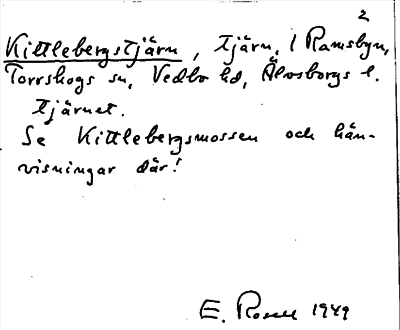 2
Kittlebergstjärn, tjärn, i Ramsbyn,
Torrskogs sn, Vedbo hd, Älvsborgs l.
tjärnet.
Se Kittlebergsmossen och hän-
visningar där!
E. Rosell 1949